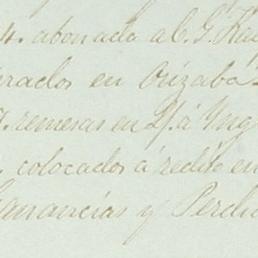 4. abonado a C. G. Ka
rados en Orizaba
7. remesas en L/. á Ing
, colocados á redito en
Ganancias y Perdi